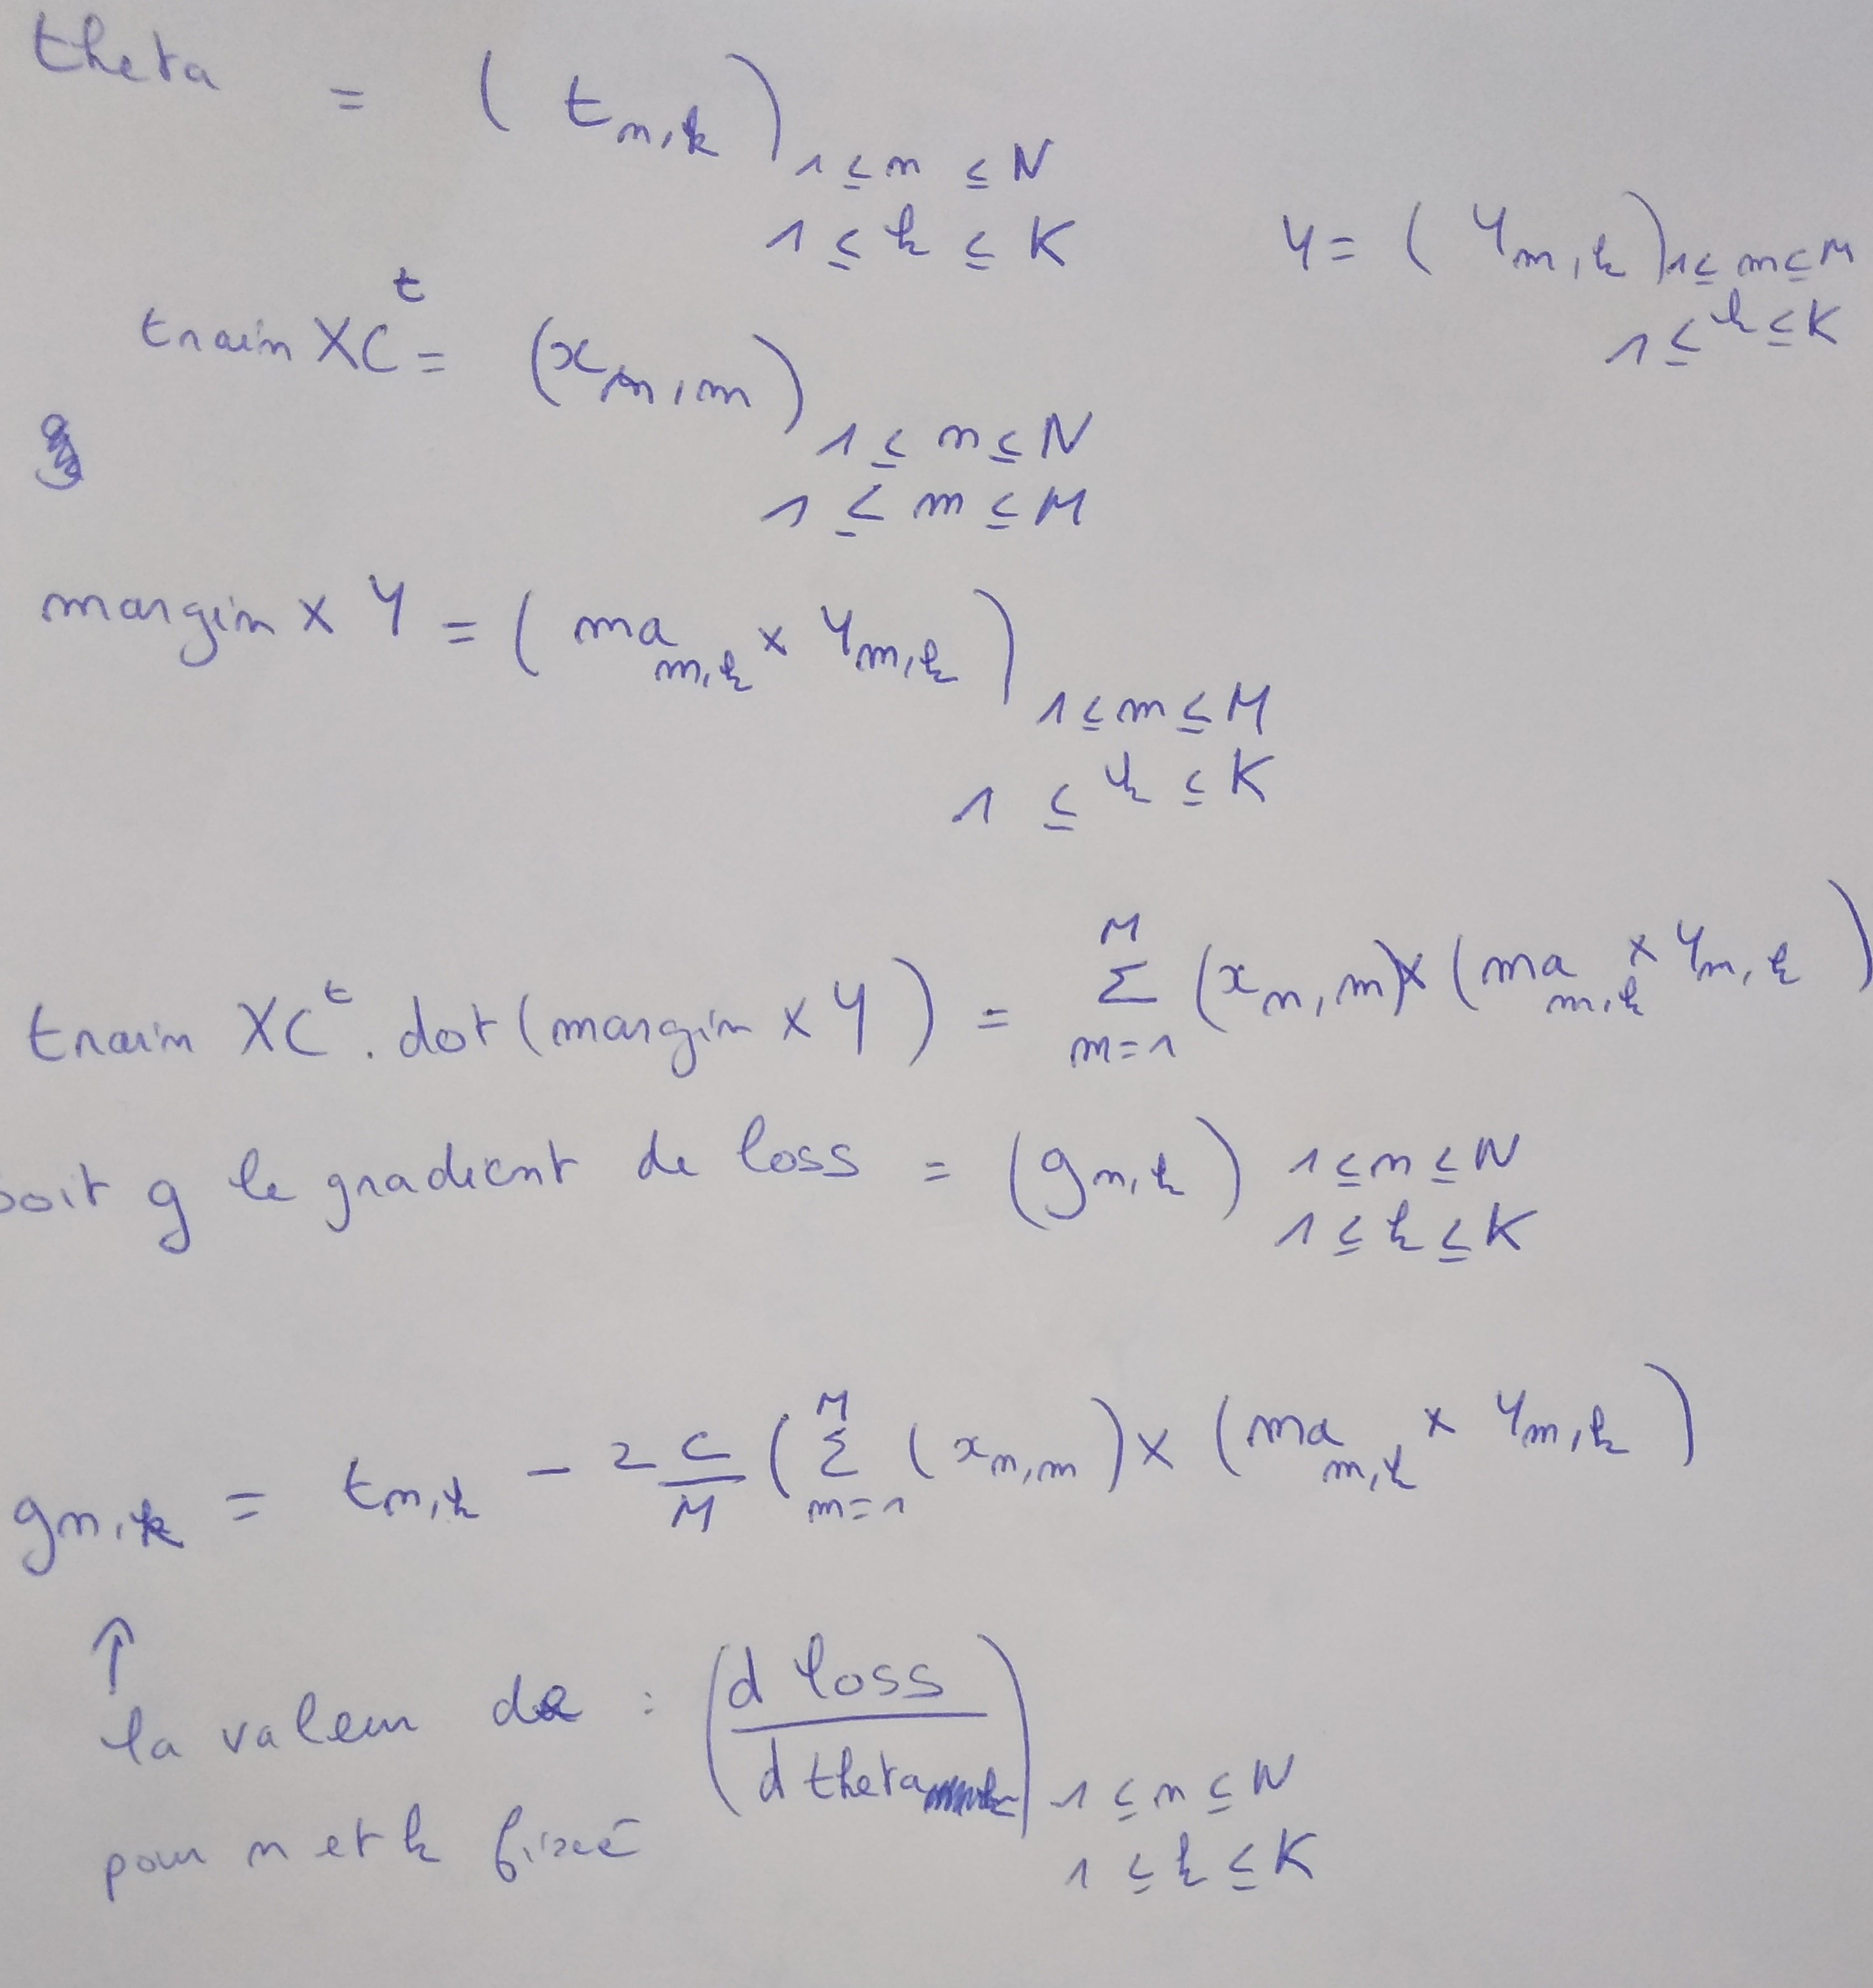 theta = ( t_{n,k} )_{1 ≤ n ≤ N
1 ≤ k ≤ K}
Y = ( Y_{m,k} )_{1 ≤ m ≤ M
1 ≤ k ≤ K}
train XC^t = (x_{n,m})_{1 ≤ n ≤ N
1 ≤ m ≤ M}
margin x Y = ( ma_{m,k} x Y_{m,k} )_{1 ≤ m ≤ M
1 ≤ k ≤ K}
train XC^t . dot (margin x Y) = \sum_{m=1}^{M} (x_{n,m}) x (ma_{m,k} x Y_{m,k})
soit g le gradient de loss = (g_{n,k}) 1 ≤ n ≤ N
1 ≤ k ≤ K
g_{n,k} = t_{n,k} - 2 \frac{C}{M} ( \sum_{m=1}^{M} (x_{n,m}) x (ma_{m,k} x Y_{m,k})
↑
la valeur de : ( \frac{d loss}{d theta} )_{1 ≤ n ≤ N
1 ≤ k ≤ K}
pour n et k fixé